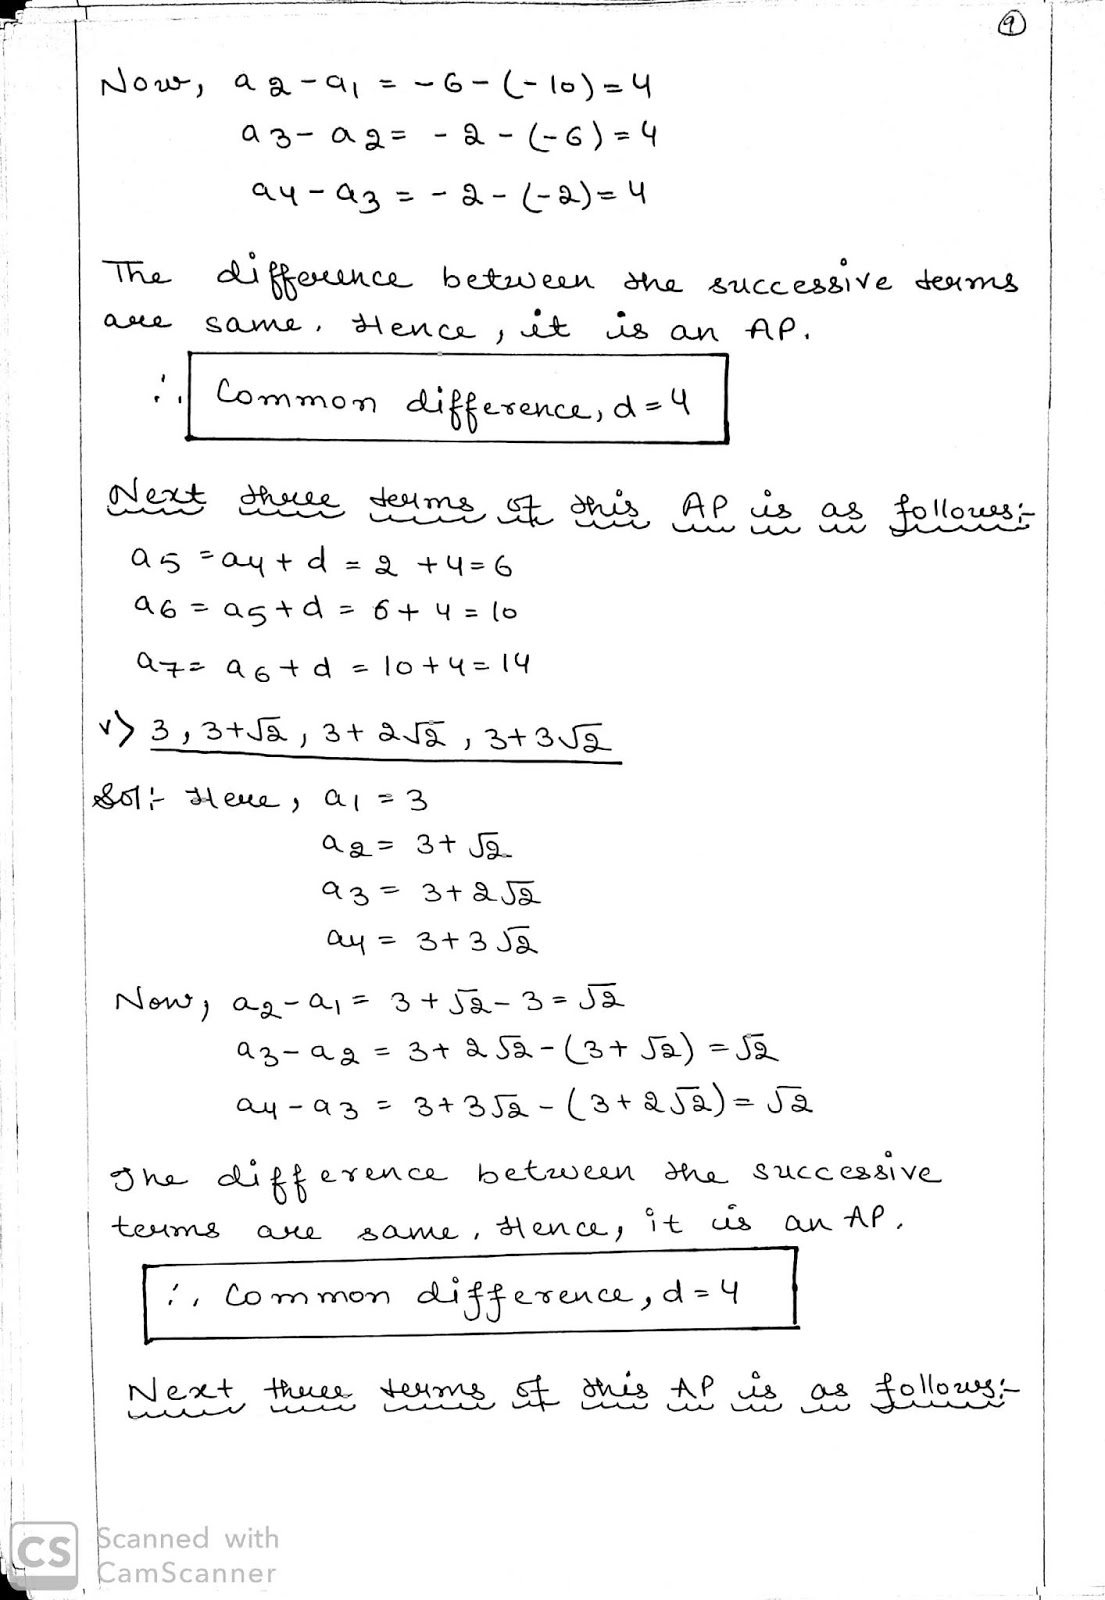 9
Now, a2-a1 = -6-(-10)=4
a3-a2= -2-(-6)=4
a4-a3 = -2-(-2)=4
The difference between the successive terms
are same. Hence, it is an AP.
∴ Common difference, d=4
Next three terms of this AP is as follows:-
a5 =a4+d = 2 +4=6
a6 = a5+d = 6+4=10
a7= a6+d = 10+4=14
v> 3, 3+√2, 3+2√2, 3+3√2
Sol:- Here, a1 =3
a2= 3+√2
a3 = 3+2√2
a4 = 3+3√2
Now, a2-a1= 3+√2-3=√2
a3-a2 = 3+2√2-(3+√2) =√2
a4-a3 = 3+3√2-(3+2√2)=√2
The difference between the successive
terms are same. Hence, it is an AP.
∴ Common difference, d=4
Next three terms of this AP is as follows:-
CS Scanned with
CamScanner